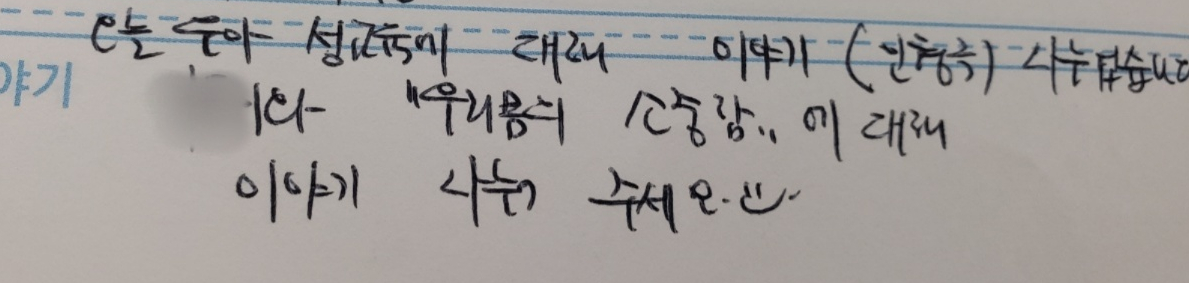 오늘 유아 성교육에 대해 이야기 (인형극) 나누었습니다
야기
이와 "우리몸의 소중함" 에 대해
이야기 나눠 주세요.